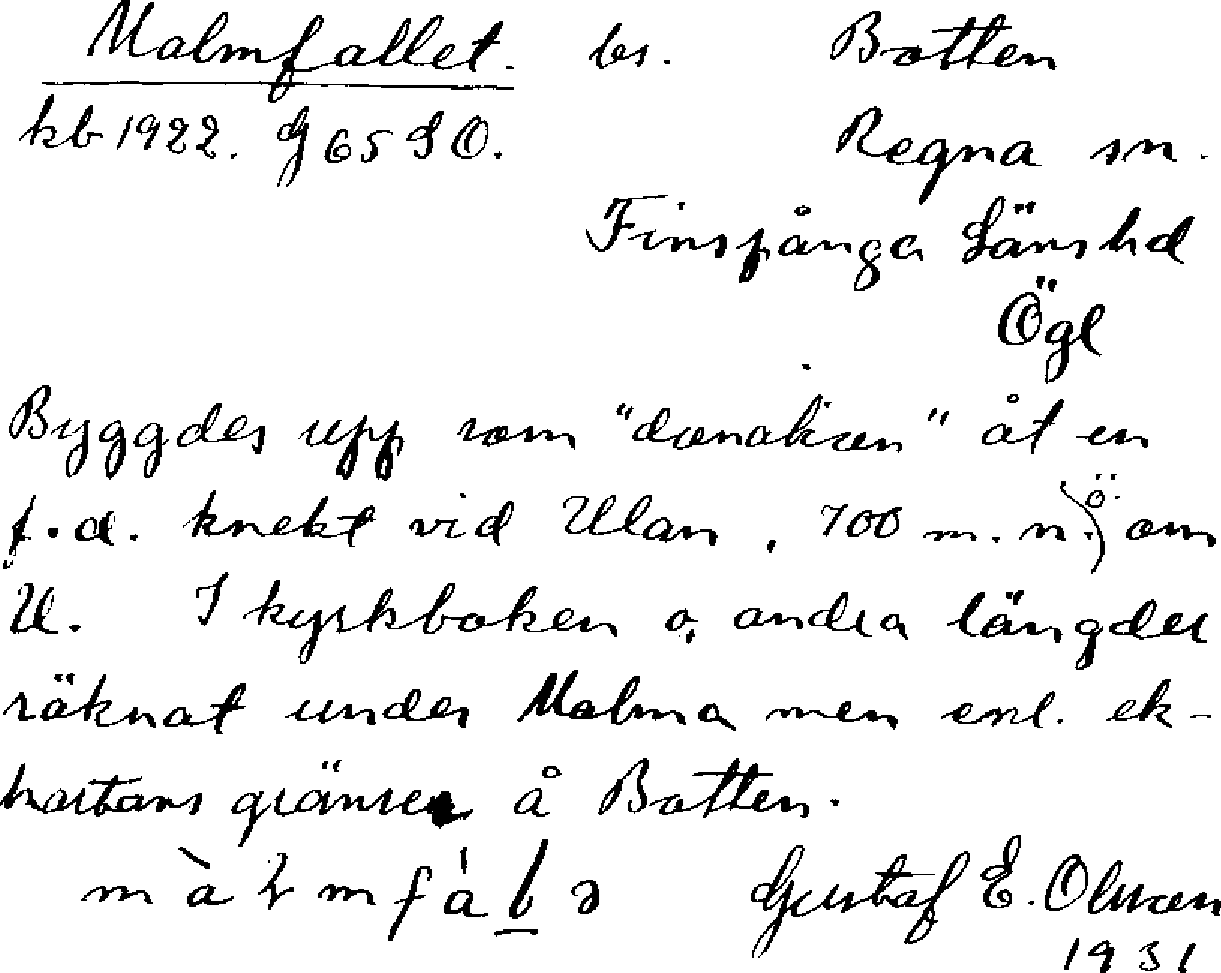 Malmfallet. bs. Botten
kb 1922. G 65 SO. Regna sn.
Finspånga Länshd
Ögl
Byggdes upp som "donation" åt en
f.d. knekt vid Ulan, 700 m. n.ö. om
U. I kyrkboken o. andra längder
räknat under Malma men enl. ek-
kartans gränser å Botten.
Gustaf E. Olsson
1931